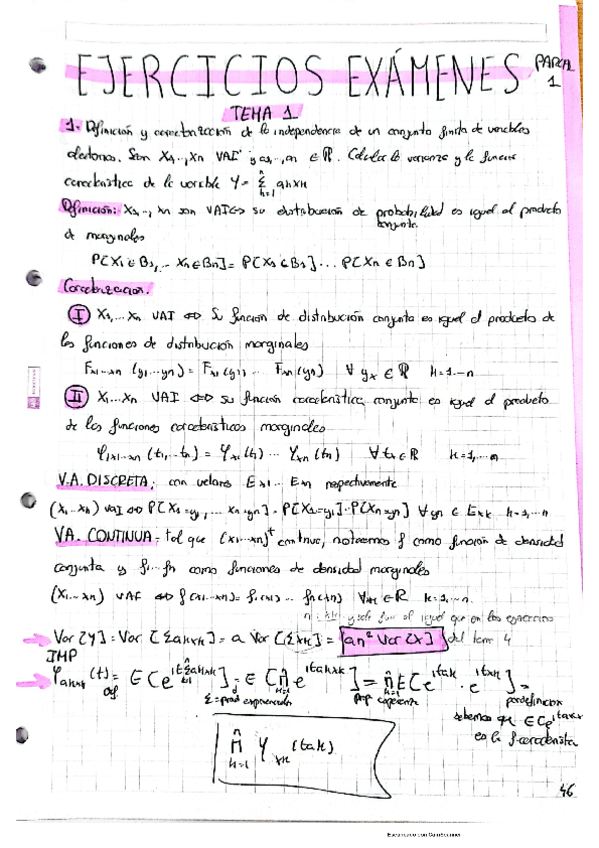 EJERCICIOS EXÁMENES PARCIAL 1
TEMA 1
1- Definición y caracterización de la independencia de un conjunto finito de variables
aleatorias. Sean X1,..,Xn VAI y a1,..,an ∈ ℝ. Calcula la varianza y la función
característica de la variable Y = Σ(k=1..n) akxk
Definición: X1,.., Xn son VAI⇔ su distribución de probabilidad es igual al producto
conjunta
de marginales
P[X1∈B1,.. Xn∈Bn]= P[X1∈B1]... P[Xn∈Bn]
Caracterización.
I X1,...Xn VAI ⇔ Su función de distribución conjunta es igual al producto de
las funciones de distribución marginales
Fx1...xn (y1...yn) = Fx1(y1)... Fxn(yn) ∀ yk ∈ ℝ k=1..n
II X1...Xn VAI ⇔ su función característica conjunta es igual al producto
de las funciones características marginales
φx1...xn (t1,..tn) = φx1(t1) ... φxn(tn) ∀tk∈ℝ k=1,..,n
V.A. DISCRETA: con valores Ex1... Exn respectivamente
(X1..Xn) VAI ⇔ P[X1=y1,... Xn=yn] = P[X1=y1]..P[Xn=yn] ∀yk ∈ Exk k=1,..n
VA. CONTINUA= tal que (X1...Xn)t continua, notaremos f como función de densidad
conjunta y f1...fn como funciones de densidad marginales
(X1..Xn) VAI ⇔ f(x1...xn)= f1(x1)... fn(xn) ∀xk∈ℝ k=1,..n.
al igual que en los ejercicios
Var[Y]= Var [Σakxk]= a Var [Σxk]= an² Var[X] del tema 4
IMP
φakxk(t)= E[e^(itΣakxk)] = E[Π(k=1..n) e^(itakxk)] = Π(k=1..n) E[e^(itak · e^(itxk)] =
def. Σ=prod exponenciales por definición
sabemos q E[e^(itakxk)
es la f.característica
Π(k=1..n) φxk (tak)
46
Escaneado con CamScanner